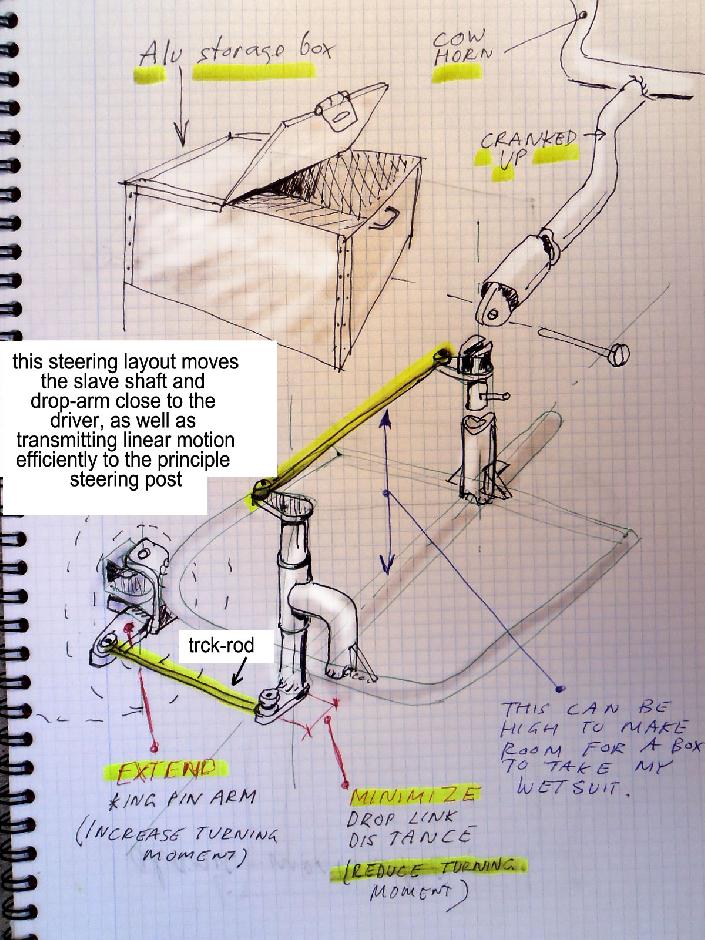 Alu storage box
COW
HORN
CRANKED
UP
this steering layout moves
the slave shaft and
drop-arm close to the
driver, as well as
transmitting linear motion
efficiently to the principle
steering post
trck-rod
EXTEND
KING PIN ARM
(INCREASE TURNING
MOMENT)
MINIMIZE
DROP LINK
DISTANCE
(REDUCE TURNING
MOMENT)
THIS CAN BE
HIGH TO MAKE
ROOM FOR A BOX
TO TAKE MY
WETSUIT.